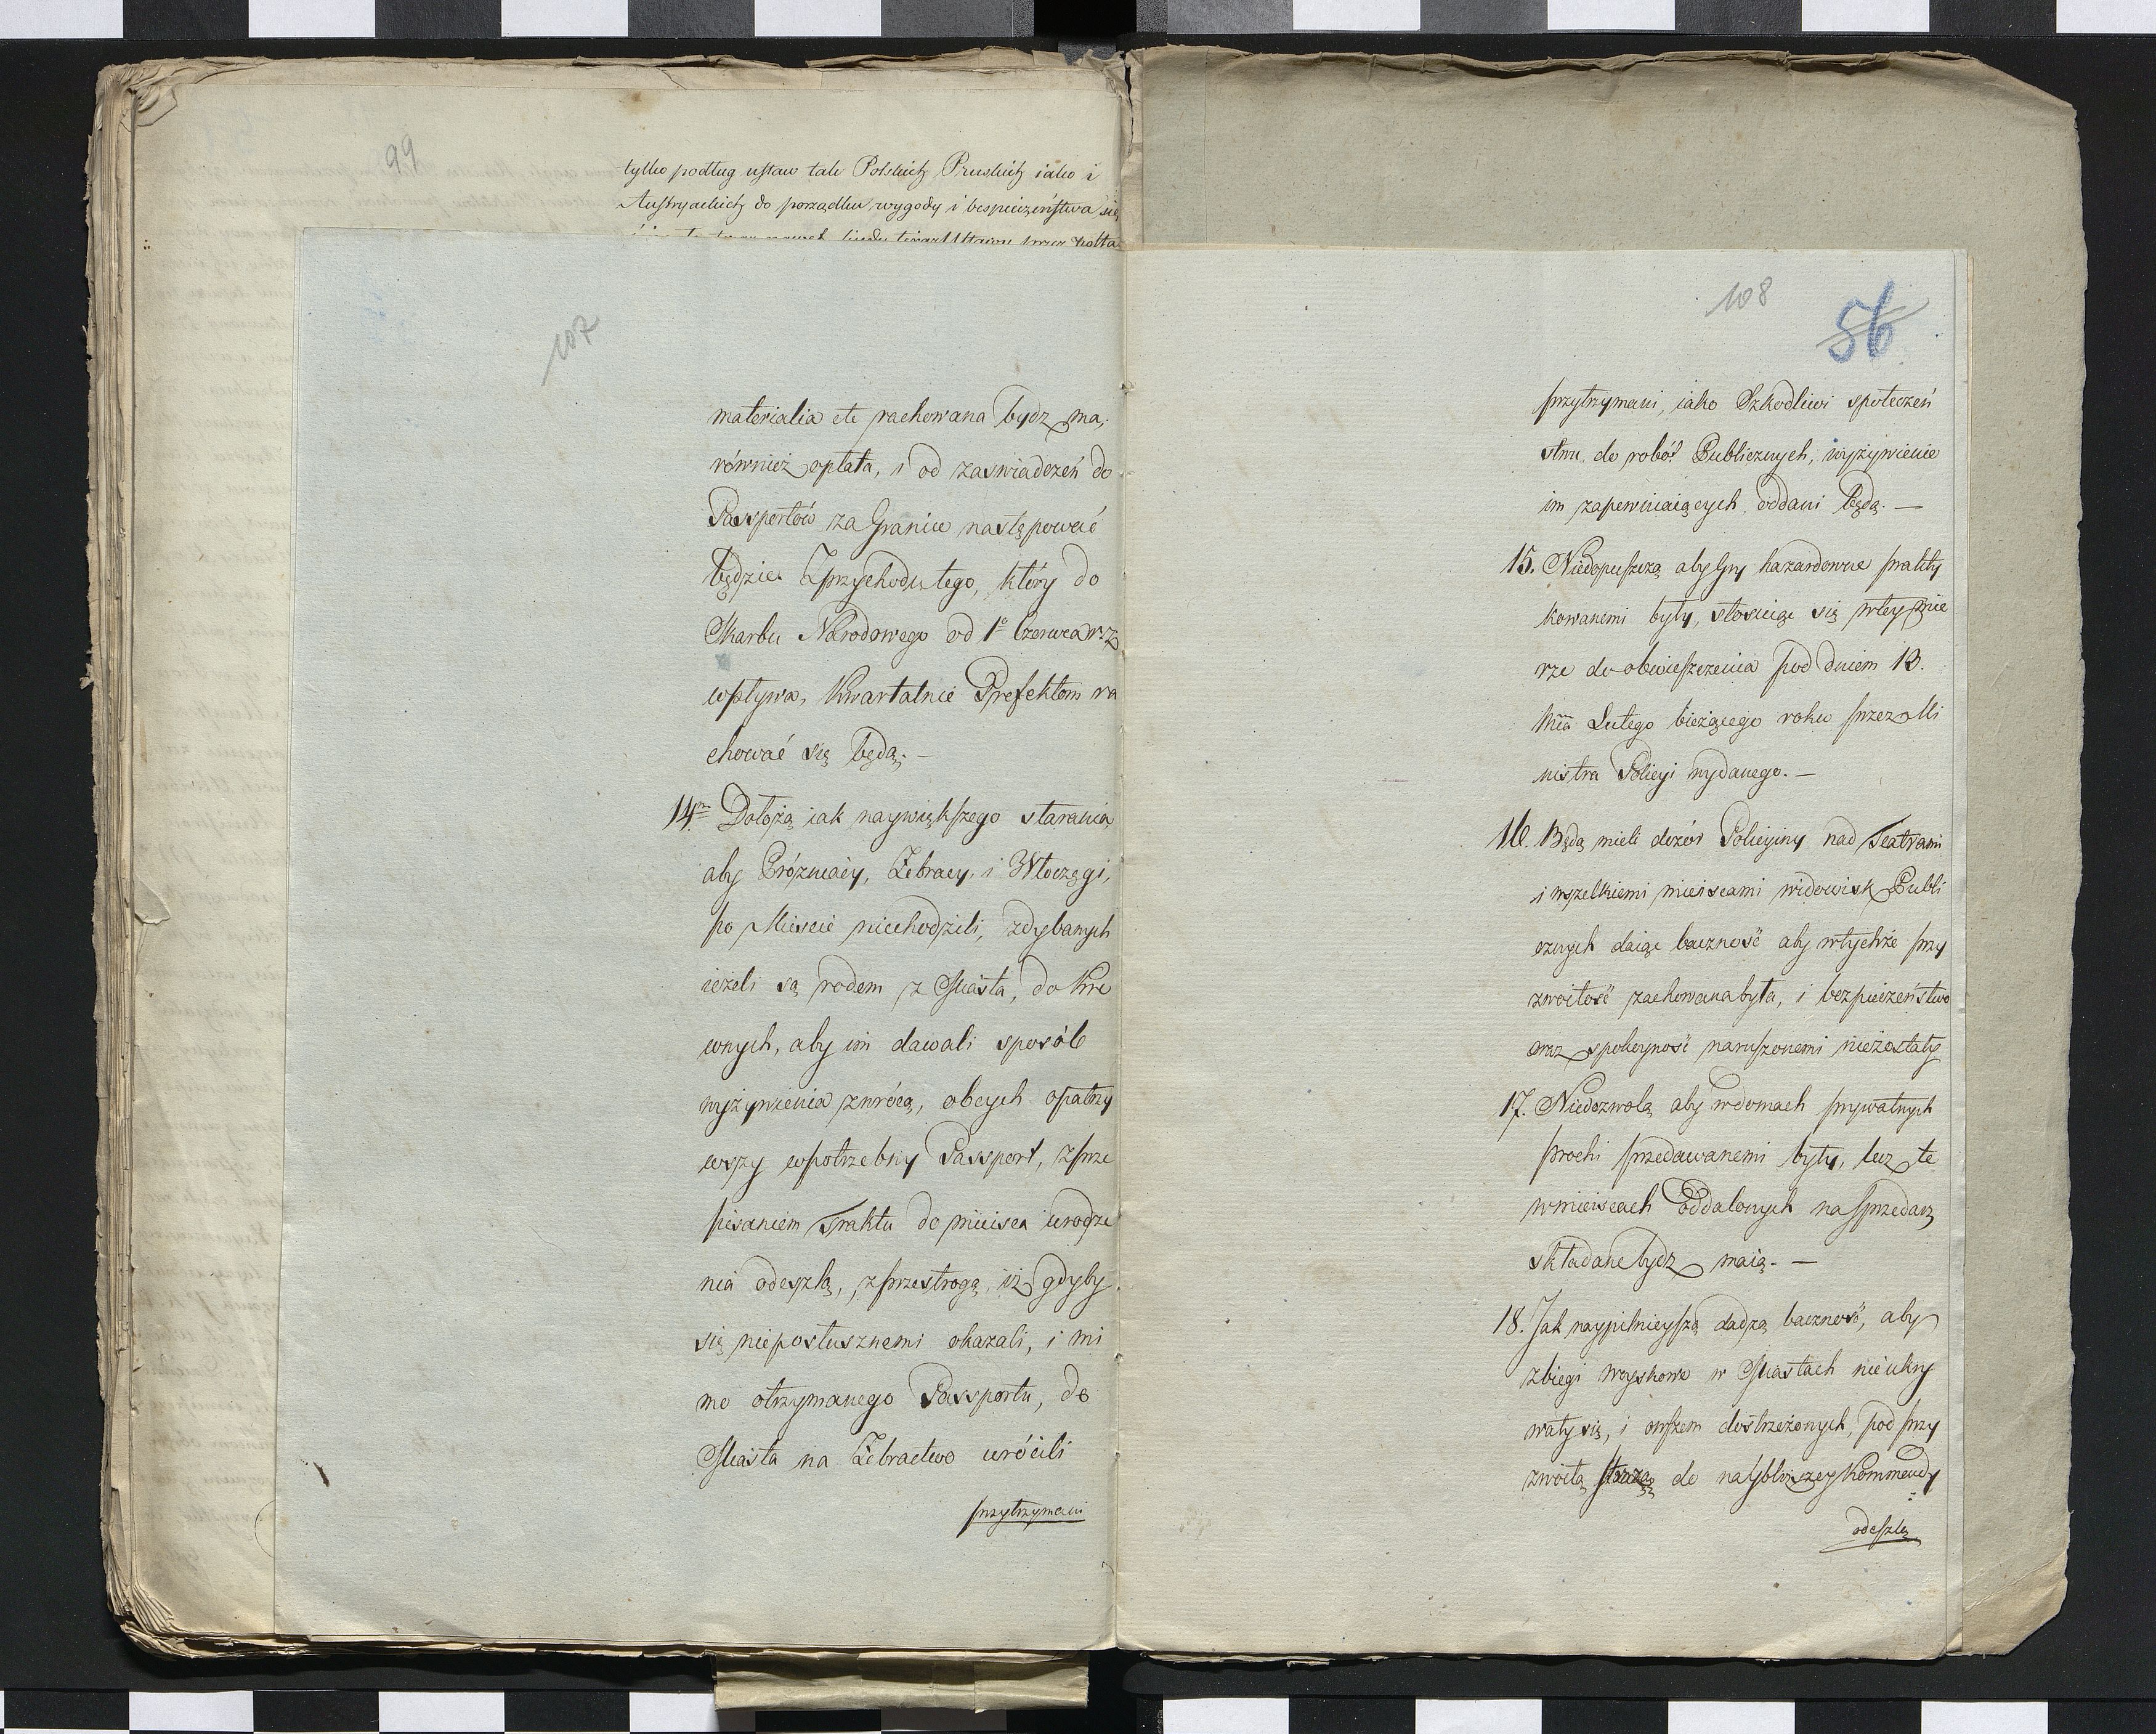 99
tylko podług ustaw tak Polskich Pruskich iako i
Austryackich do porządku wygody i bespieczeństwa się
107
materialia etc rachowana bydz ma,
również opłata, i od zaswiadczeń do
Passportów za Granice następować
będzie. Z przychodu tego, który do
Skarbu Narodowego od 1º Czerwca r. z
wpływa, Kwartalnie Prefektom ra
chować się będą. —
14º Dołożą iak naywiększego starania
aby Próżniacy, Żebracy, i Włoczęgi,
po Miescie niechodzili, zdybanych
ieżeli są rodem z Miasta, do Kre
wnych, aby im dawali sposób
wyżywienia zwrócą, obcych opatrzy
wszy w potrzebny Passport, z prze
pisaniem Traktu do mieisca urodze
nia odeszlą, z przestrogą, iż gdyby
się nieposłusznemi okazali, i mi
mo otrzymanego Passportu, do
Miasta na Żebractwo wrócili
przytrzymani
108
56
przytrzymani, iako Szkodliwi społeczeń
stwu, do robót Publicznych, wyżywienie
im zapewniaiących oddani będą. —
15. Niedopuszczą aby Gry hazardowne prakty
kowanemi były, stosuiąc się w tey mie
rze do obwieszczenia pod dniem 13.
Mca Lutego bieżącego roku przez Mi
nistra Policyi wydanego. —
16. Będą mieli dozór Policyiny nad Teatrami
i wszelkiemi mieiscami widowisk Publi
cznych daiąc baczność aby w tychże przy
zwoitość zachowana była, i bezpieczeństwo
oraz spokoyność naruszonemi niezostały
17. Niedozwolą aby w domach prywatnych
prochi przedawanemi były, lecz te
w mieiscach Oddalonych na sprzedarz
składane bydz maią. —
18. Jak naypilnieyszą dadzą baczność, aby
zbiegi woyskowe w Miastach nie ukry
wały się, i owszem dostrzeżonych, pod przy
zwoitą strażą do naybliższey Kommendy
odeszlą